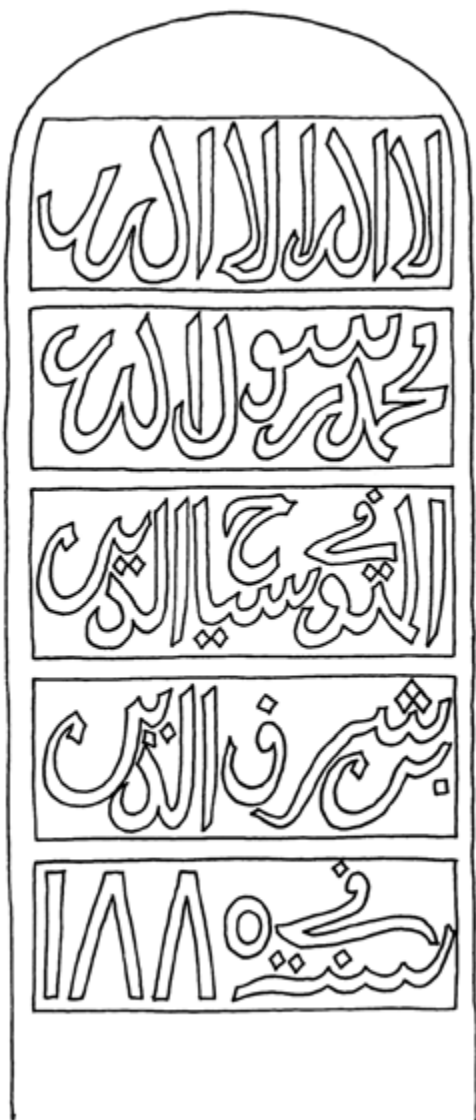 لا اله الا الله
محمد رسول الله
المتوفي سياح الدين
بن شرف الدين
في سنة ١٨٨٥